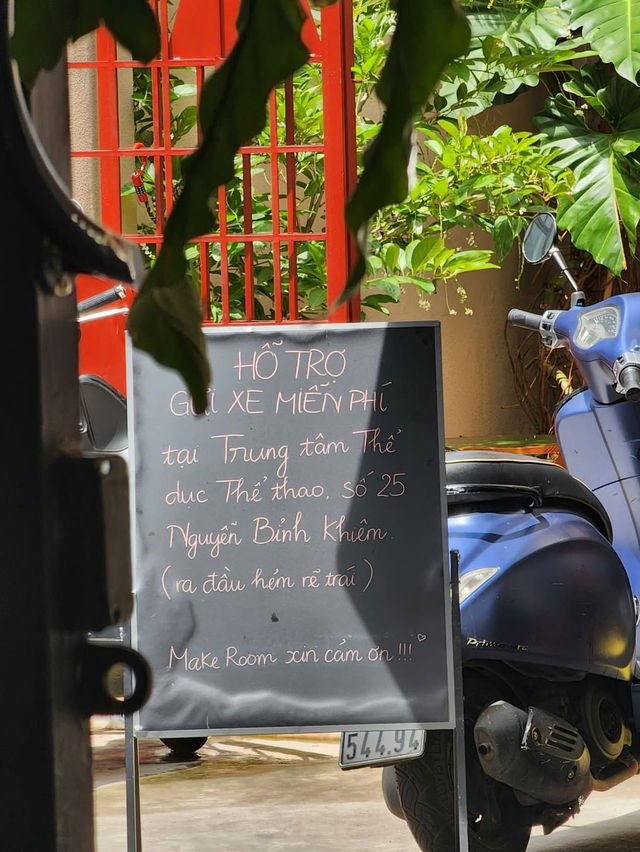 HỖ TRỢ
GỬI XE MIỄN PHÍ
tại Trung tâm Thể
dục Thể thao, số 25
Nguyễn Bỉnh Khiêm.
(ra đầu hẻm rẽ trái)
Make Room xin cảm ơn!!!
Primavera
544.94